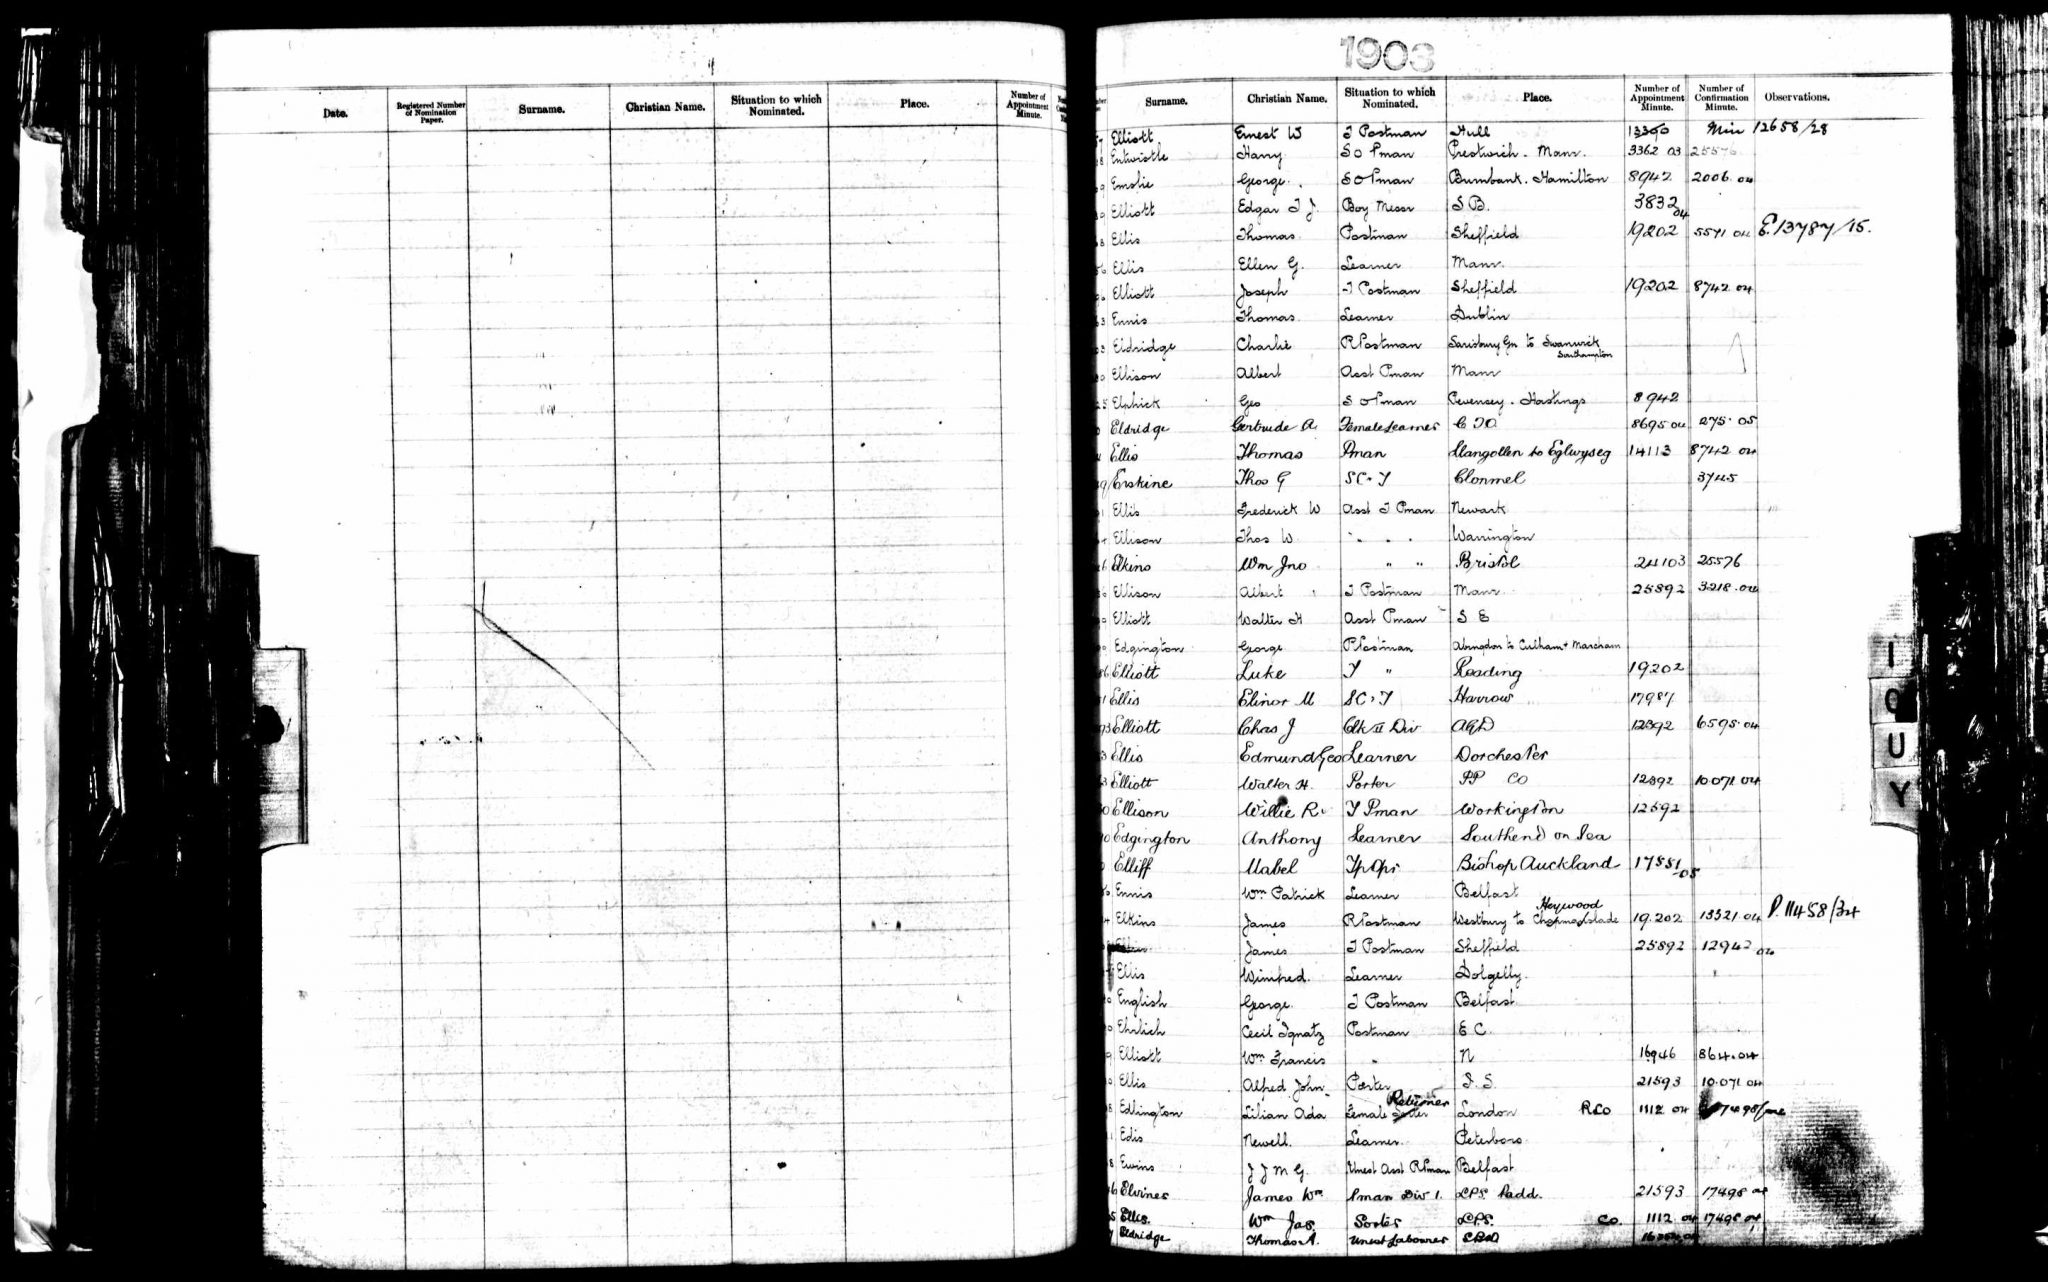 1903
Date. Registered Number of Nomination Paper. Surname. Christian Name. Situation to which Nominated. Place. Number of Appointment Minute.
Surname. Christian Name. Situation to which Nominated. Place. Number of Appointment Minute. Number of Confirmation Minute. Observations.
Elliott Ernest W T Postman Hull 13390 Min 12658/28
Entwistle Harry S O Pman Prestwich. Manr. 3362 03 25576
Emslie George. S O Pman Burnbank. Hamilton 8942 2006.04
Elliott Edgar T J. Boy Messr S B. 3832 04
Ellis Thomas Postman Sheffield 19202 5571 04 E.13787/15.
Ellis Ellen G. Learner Manr.
Elliott Joseph T Postman Sheffield 19202 8742.04
Ennis Thomas. Learner Dublin
Eldridge Charlie R Postman Sarisbury Gn to Swanwick Southampton
Ellison Albert Asst Pman Manr
Elphick Geo S O Pman Pevensey. Hastings 8942
Eldridge Gertrude A. Female Learner C T O 8695 04 275.05
Ellis Thomas Pman Llangollen to Eglwyseg 14113 8742 04
Erskine Thos G S C & T Clonmel 3745
Ellis Frederick W Asst T Pman Newark
Ellison Thos W. " " " Warrington
Elkins Wm Jno " " Bristol 24103 25576
Ellison Albert T Postman Manr 25892 3218.04
Elliott Walter H Asst Pman S E
Edgington George R Postman Abingdon to Culham & Marcham
Elliott Luke T " Reading 19202
Ellis Elinor M S C & T Harrow 17987
Elliott Chas J Clk II Div A G D 12392 6595.04
Ellis Edmund Geo Learner Dorchester
Elliott Walter H. Porter P P CO 12392 10.071 04
Ellison Willie R. T Pman Workington 12592
Edgington Anthony Learner Southend on Sea
Elliff Mabel Bishop Auckland 17551.05
Ennis Wm Patrick Learner Belfast
Elkins James R Postman Westbury to Heywood Chapmanslade 19.202 13321.04 P.11458/34
James T Postman Sheffield 25892 12942 04
Ellis Winifred. Learner Dolgelly.
English George. T Postman Belfast
Ehrlich Cecil Ignatz Postman E C.
Elliott Wm Francis " N 16946 864.04
Ellis Alfred John Porter 21593 10.071 04
Edlington Lilian Ada Female London R L O 1112 04
Edis Newell. Learner. Peterboro.
Ewins J J M G. Unest Asst R Pman Belfast
Elvines James Wm Pman Div 1. L P S Padd. 21593 17498 04
Ellis. Wm Jas. Sorter L.P.S. Co. 1112 04 17498 04
Eldridge Thomas A. Unest Labourer
I
O
U
Y